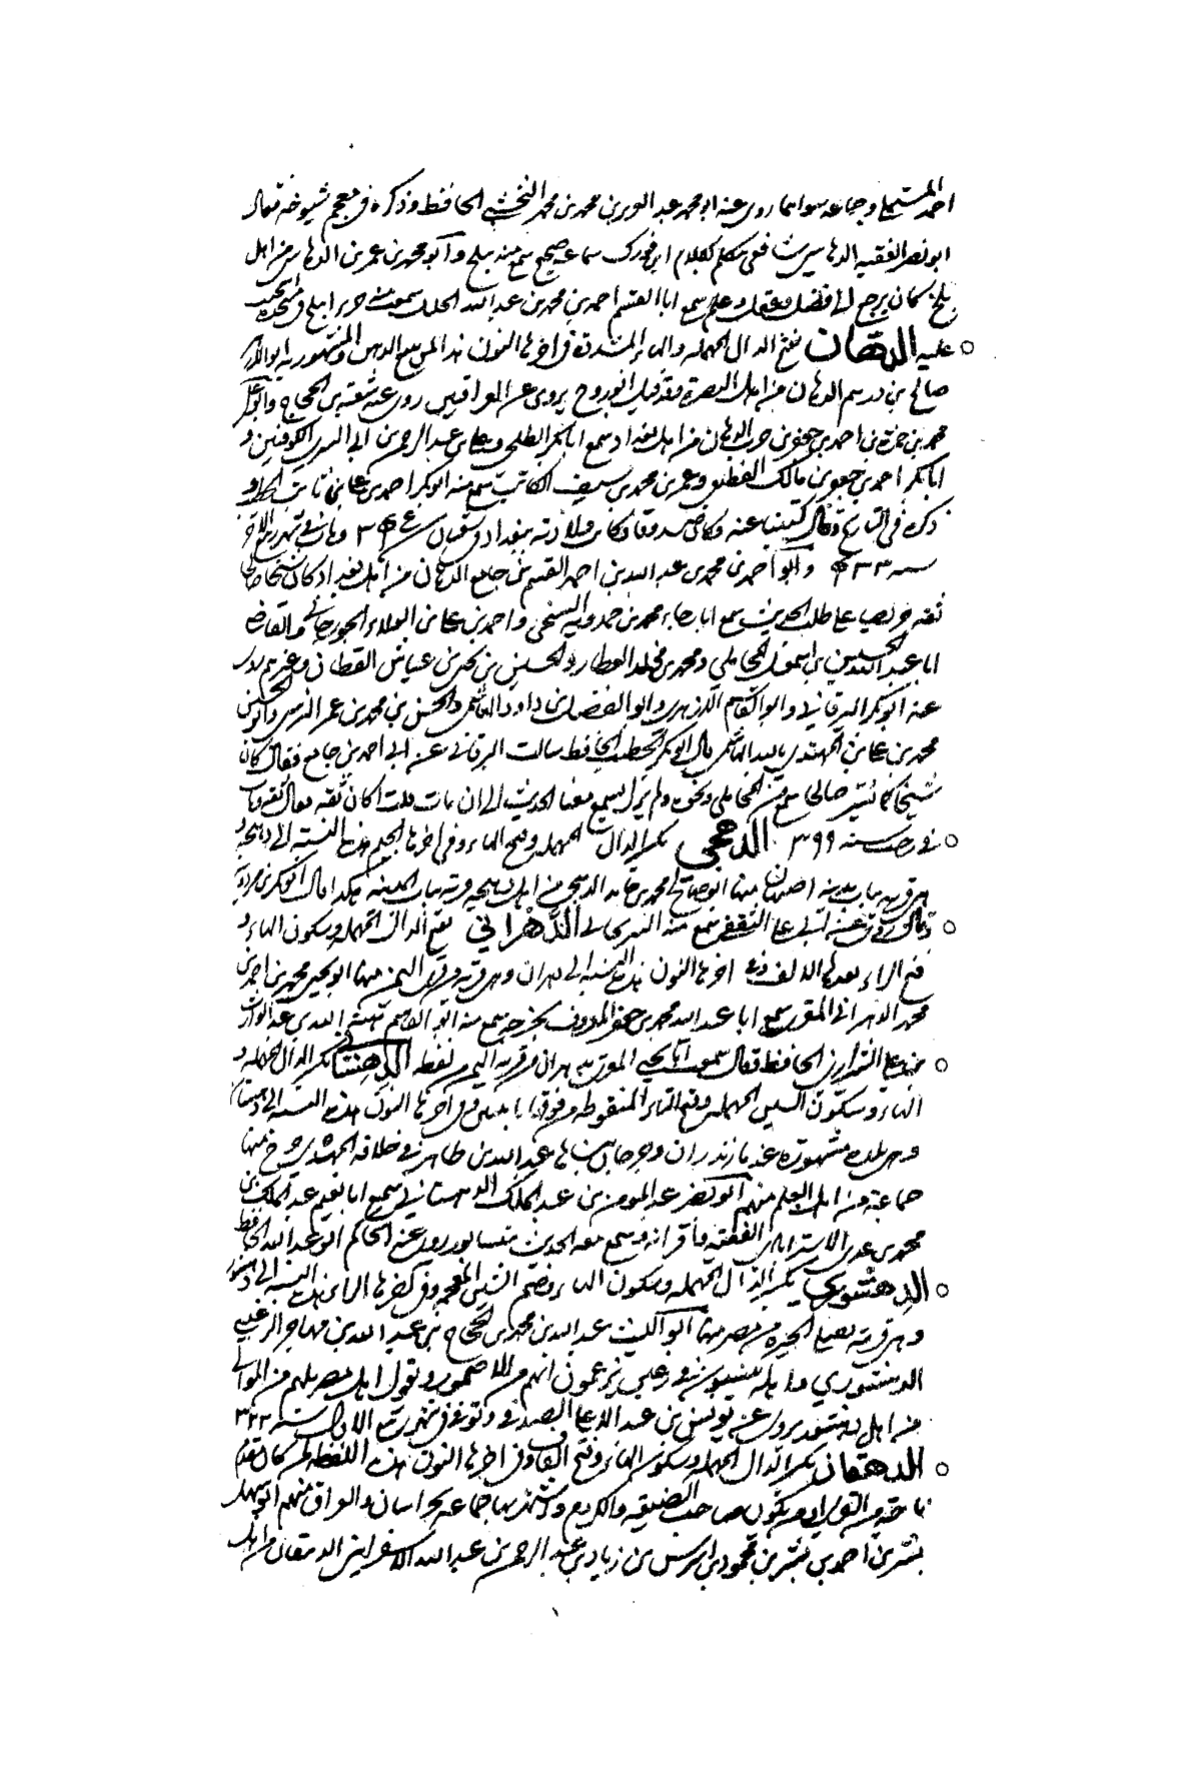 احمد المستملي وجماعة سواهما روى عنه ابو محمد عبد العزيز بن محمد بن محمد النخشبي الحافظ وذكره في معجم شيوخه فقال
ابو نصر الفقيه الدهاس شافعي متكلم لكلام ابن فورك سماعه صحيح سمع منه ببلخ وابو محمد بن عمر بن الدهاس من اهل
بلخ كان يرجع الى فضل وعقل وعلم سمع ابا القسم احمد بن محمد بن عبد الله الخليلي سمعت منه جزءا ببلخ
عليه الدهان بفتح الدال المهملة والهاء المشددة وفي اخرها النون هذا لمن يبيع الدهن والمشهور به ابو الازهر
صالح بن درهم الدهان من اهل البصرة وقد قيل ابو روح يروي عن العراقيين روى عنه شعبة بن الحجاج وابو علي
محمد بن حمزة بن احمد بن جعفر بن حرب الدهان من اهل بغداد سمع ابا بكر الطلحي وعلي بن عبد الرحمن بن ابي السري الكوفيين و
ابا بكر احمد بن جعفر بن مالك القطيعي وعمر بن محمد بن سيف الكاتب سمع منه ابو بكر احمد بن علي بن ثابت الخطيب و
ذكره في التاريخ وقال كتبنا عنه وكان صدوقا وكان ولادته ببغداد في شعبان ومات في شهر ربيع الاخر
سنة وابو احمد محمد بن عبد الله بن احمد بن القسم بن جامع الدهان من اهل بغداد كان شيخا صالحا
ثقة حريصا على طلب الحديث سمع ابا رجاء محمد بن حمدويه السنجي واحمد بن علي بن العلاء الجوزجاني والقاضي
ابا عبد الله الحسين بن اسمعيل المحاملي ومحمد بن مخلد العطار والحسين بن يحيى بن عياش القطان وغيرهم روى
عنه ابو بكر البرقاني وابو القاسم الازهري وابو الفضل بن داود الهاشمي والحسن بن محمد بن عمر النرسي وابو الحسين
محمد بن علي بن المهتدي بالله الهاشمي قال ابو بكر الخطيب الحافظ سالت البرقاني عن ابي احمد بن جامع فقال كان
شيخا كاتبا صالحا سمع من المحاملي ونحوه ولم يزل يسمع معنا الحديث الى ان مات قلت اكان ثقة فقال ثقة ومات
في رجب سنة ٣٩٩ الدهجي بكسر الدال المهملة وفتح الهاء وفي اخرها الجيم هذه النسبة الى دهجية و
هي قرية بباب مدينة اصبهان منها ابو صالح محمد بن حامد الدهجي من اهل دهجية قرية بباب المدينة هكذا قال ابو بكر بن مردويه
وقال روى عن ابي علي الثقفي سمع منه السري الدهراني بفتح الدال المهملة وسكون الهاء و
فتح الراء بعدها الالف وفي اخرها النون هذه النسبة الى دهران وهي قرية من قرى اليمن منها ابو يحيى محمد بن احمد بن
محمد الدهراني المقرئ سمع ابا عبد الله محمد بن جعفر المعروف بخرجه سمع منه ابو القاسم هبة الله بن عبد الوارث
بن علي الشيرازي الحافظ فقال سمعت ابا يحيى المقرئ بدهران قرية اليمن لفظه الدهستاني بكسر الدال المهملة و
الهاء وسكون السين المهملة وفتح التاء المنقوطة من فوقها باثنتين وفي اخرها النون هذه النسبة الى دهستان
وهي بلدة مشهورة عند مازندران وجرجان بناها عبد الله بن طاهر في خلافة المهدي خرج منها
جماعة من اهل العلم منهم ابو نصر عبد المومن بن عبد الملك الدهستاني سمع ابا نعيم عبد الملك بن
محمد بن عدي الاستراباذي الفقيه واقرانه وسمع معه الحديث بنيسابور روى عنه الحاكم ابو عبد الله الحافظ
الدهشوري بكسر الدال المهملة وسكون الهاء وضم الشين المعجمة وفي اخرها الراء هذه النسبة الى دهشور
وهي قرية بصعيد الجيزة من مصر منها ابو الليث عبد الله بن محمد بن الحجاج بن عبد الله بن مهاجر الرعيني
الدهشوري واهله ينسبون في رعين يزعمون انهم من الاصمور ويقول اهل مصر بل هم من الموالي
من اهل دهشور يروي عن يونس بن عبد الاعلى الصدفي وتوفي في شهر ربيع الاول سنة ٣٢٢
الدهقان بكسر الدال المهملة وسكون الهاء وفتح القاف وفي اخرها النون هذه اللفظة لمن كان مقدم
ناحية من القرى ومن يكون صاحب الضيعة والكروم واشتهر بها جماعة بخراسان والعراق منهم ابو سهل
بشر بن احمد بن بشر بن محمود بن اشرس بن زياد بن عبد الرحمن بن عبد الله الاسفرايني الدهقان من اهل